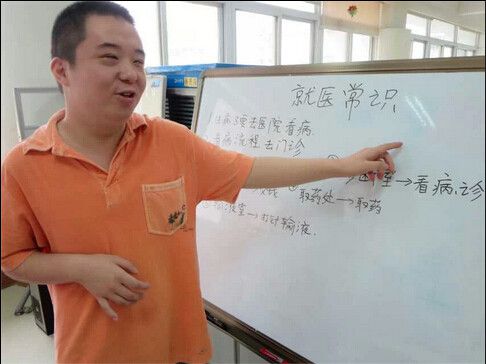 就医常识
1.生病了要去医院看病.
看病流程 去门诊
室→看病.诊
取药处→取药
室→打针输液.